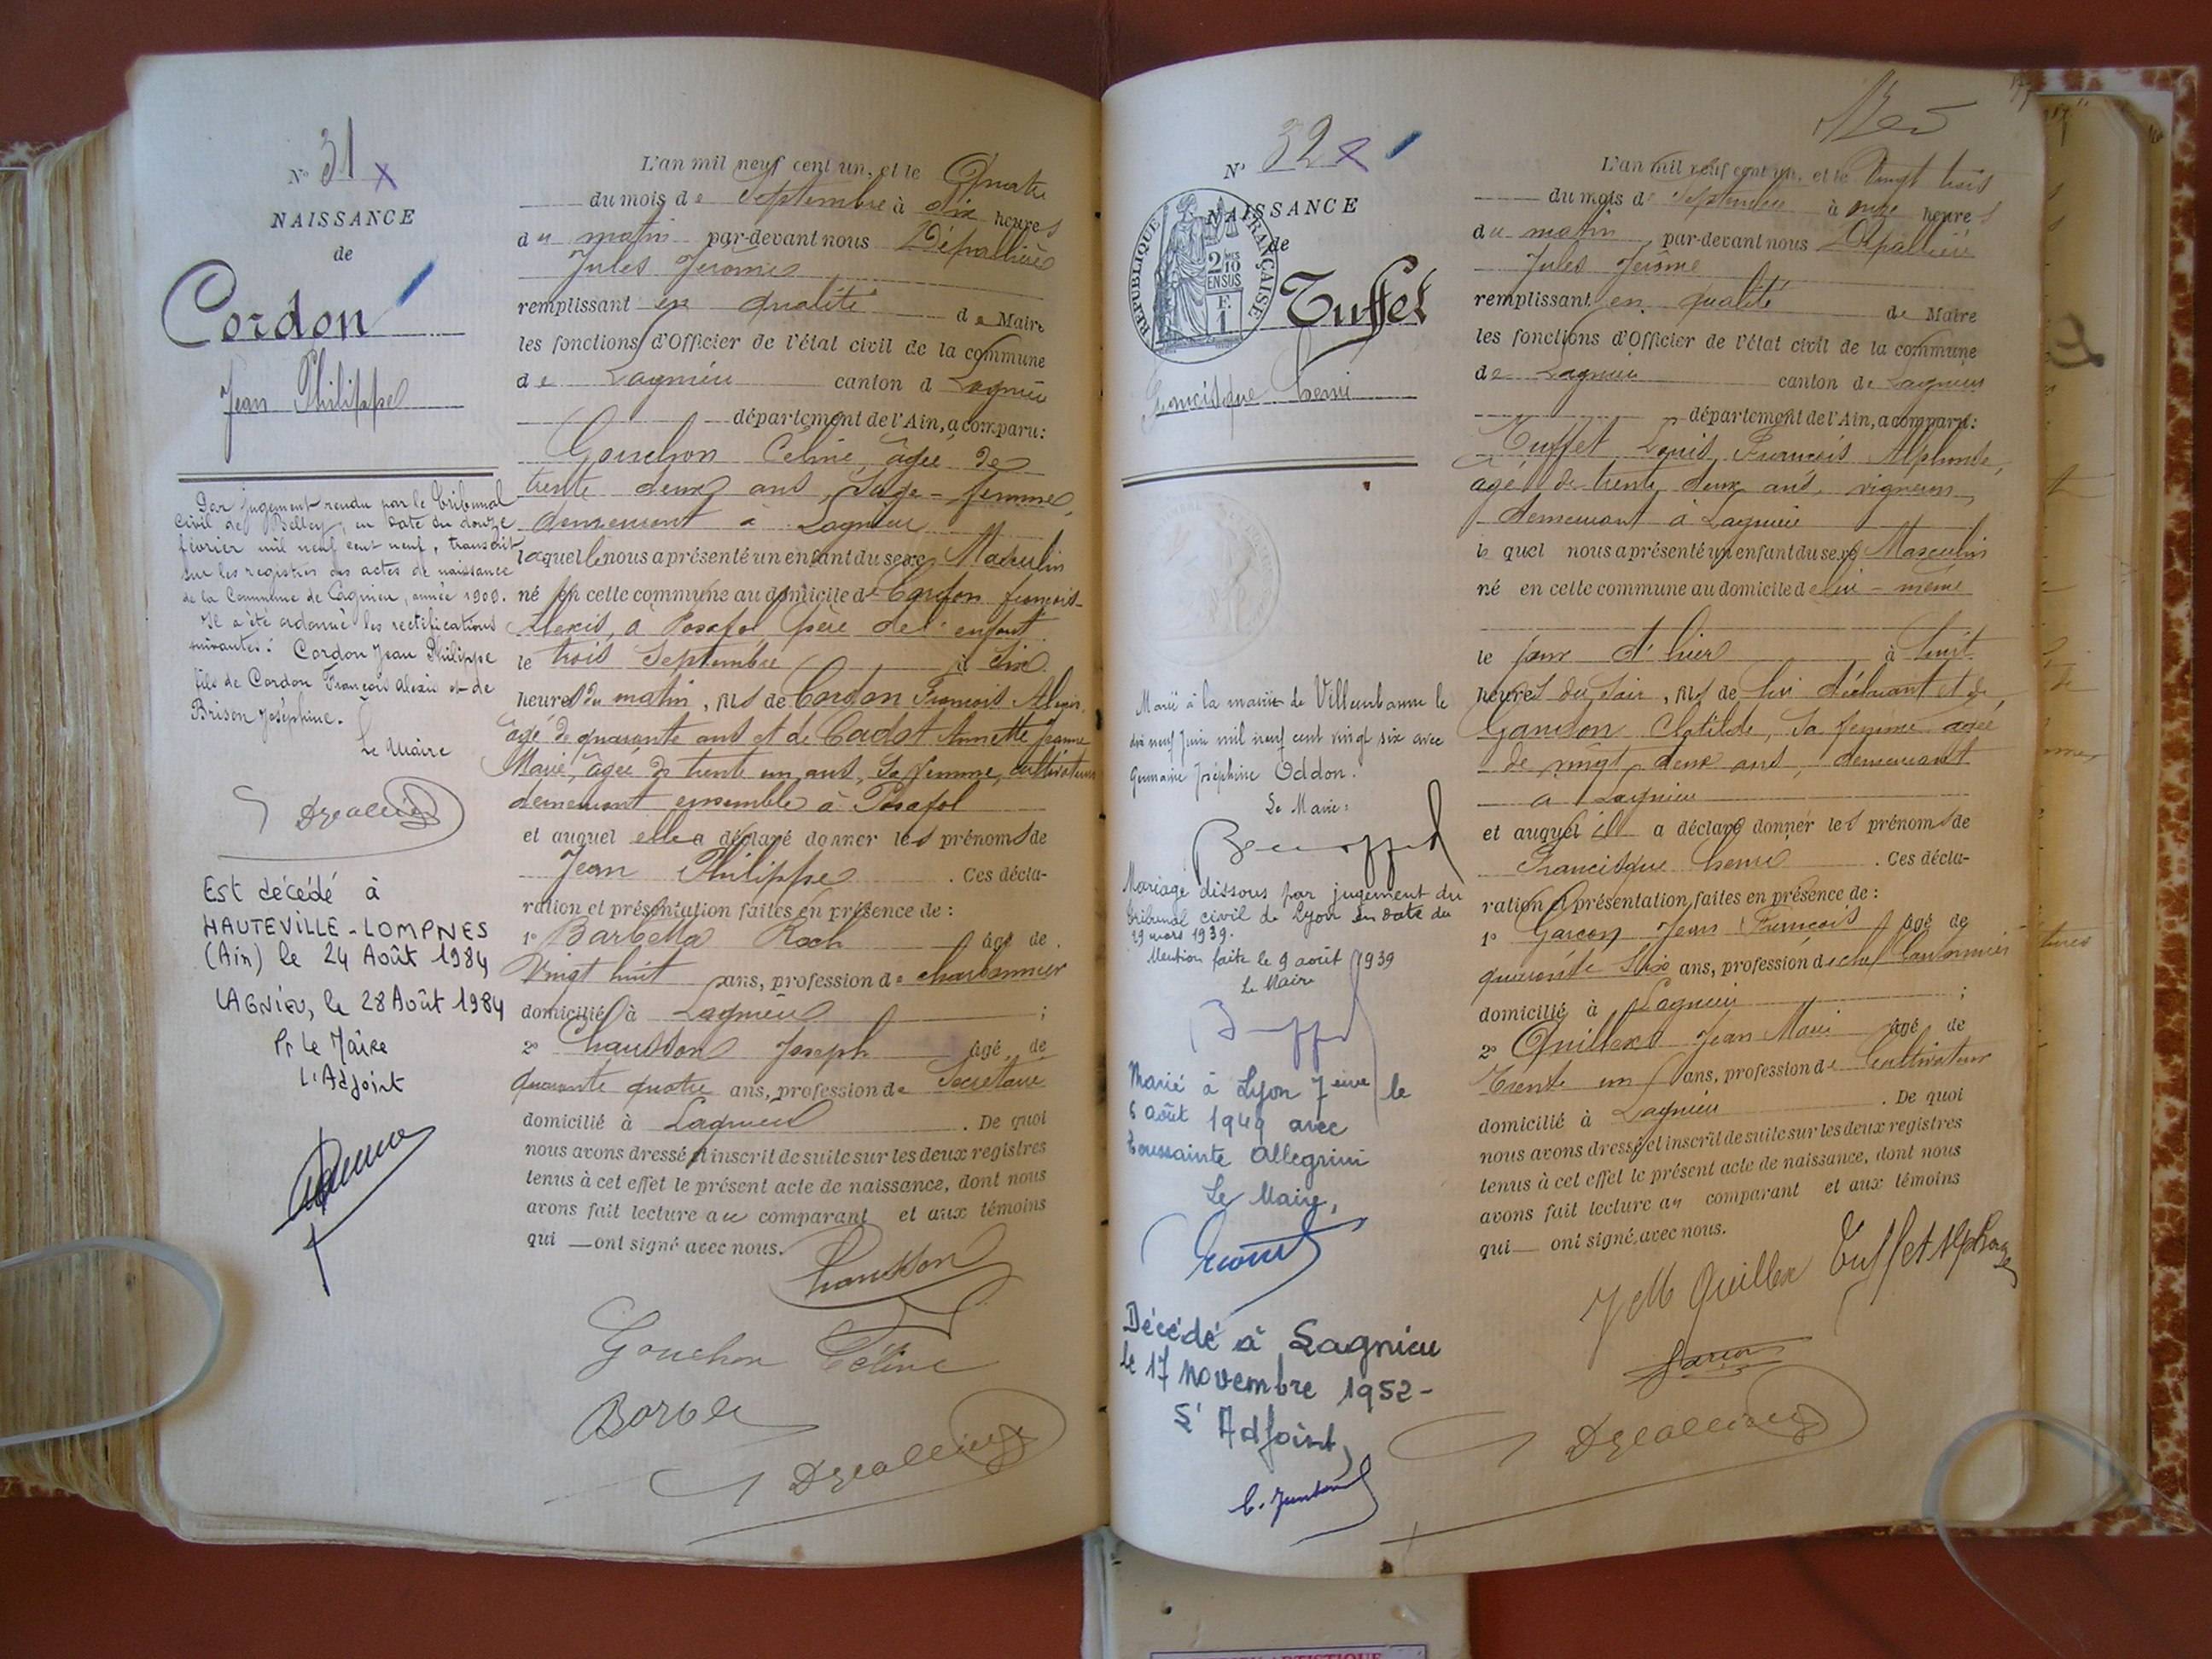 N° 31
NAISSANCE
de
Cordon
Jean Philippe
Par jugement rendu par le tribunal
civil de Belley, en date du douze
février mil neuf cent neuf, transcrit
sur les registres des actes de naissance
de la Commune de Lagnieu, année 1909.
Il a été ordonné les rectifications
suivantes : Cordon Jean Philippe
fils de Cordon François Alexis et de
Brison Joséphine.
Le Maire
Est décédé à
HAUTEVILLE-LOMPNES
(Ain) le 24 Août 1984
LAGNIEU, le 28 Août 1984
Pr Le Maire
L'Adjoint
L'an mil neuf cent un, et le Quatre
du mois de Septembre à dix heures
du matin par-devant nous Dépallière
Jules Jérôme
remplissant en qualité de Maire
les fonctions d'Officier de l'état civil de la commune
de Lagnieu canton d Lagnieu
département de l'Ain, a comparu :
Gouchon Céline, âgée de
trente deux ans, Sage-femme,
demeurant à Lagnieu
laquelle nous a présenté un enfant du sexe Masculin
né en cette commune au domicile de Cordon françois-
Alexis, à Posafol père de l'enfant
le trois Septembre à Six
heures du matin, fils de Cordon François Alexis,
âgé de quarante ans et de Cadot Annette Jeanne
Marie, âgée de trente un ans, Sa femme, cultivateurs
demeurant ensemble à Posafol
et auquel elle a déclaré donner les prénoms de
Jean Philippe . Ces décla-
ration et présentation faites en présence de :
1° Barbetta Roch âgé de
Vingt huit ans, profession de charbonnier
domicilié à Lagnieu ;
2° Chausson Joseph âgé de
quarante quatre ans, profession de Secrétaire
domicilié à Lagnieu . De quoi
nous avons dressé et inscrit de suite sur les deux registres
tenus à cet effet le présent acte de naissance, dont nous
avons fait lecture au comparant et aux témoins
qui ont signé avec nous.
Chausson
Gouchon Céline
N° 32
NAISSANCE
de
RÉPUBLIQUE FRANÇAISE
2/10
EN SUS
Tuffet
Francisque Henri
Marié à la mairie de Villeurbanne le
dix neuf Juin mil neuf cent vingt six avec
Germaine Joséphine Oddon.
Le Maire :
Mariage dissous par jugement du
tribunal civil de Lyon en date du
29 mars 1939.
Mention faite le 9 août 1939
Le Maire
Marié à Lyon 7ème le
6 août 1949 avec
Toussainte Allegrini
Le Maire,
Décédé à Lagnieu
le 17 Novembre 1952-
L'Adjoint,
L'an mil neuf cent un, et le Vingt trois
du mois de Septembre à onze heures
du matin, par-devant nous Dépallière
Jules Jérôme
remplissant en qualité de Maire
les fonctions d'Officier de l'état civil de la commune
de Lagnieu canton de Lagnieu
département de l'Ain, a comparu :
Tuffet Louis François Alphonse,
âgé de trente deux ans, vigneron,
demeurant à Lagnieu
le quel nous a présenté un enfant du sexe Masculin
né en cette commune au domicile de lui-même
le jour d'hier à huit
heures du soir, fils de lui déclarant et de
Clotilde, Sa femme âgée
de vingt deux ans, demeurant
à Lagnieu
et auquel il a déclaré donner les prénoms de
Francisque henri . Ces décla-
ration et présentation faites en présence de :
1° Garçon Jean François âgé de
quarante Six ans, profession de chef Cantonnier
domicilié à Lagnieu ;
2° Quillex Jean Marie âgé de
Trente un ans, profession de Cultivateur
domicilié à Lagnieu . De quoi
nous avons dressé et inscrit de suite sur les deux registres
tenus à cet effet le présent acte de naissance, dont nous
avons fait lecture au comparant et aux témoins
qui ont signé avec nous.
J M Quillex Tuffet Alphonse